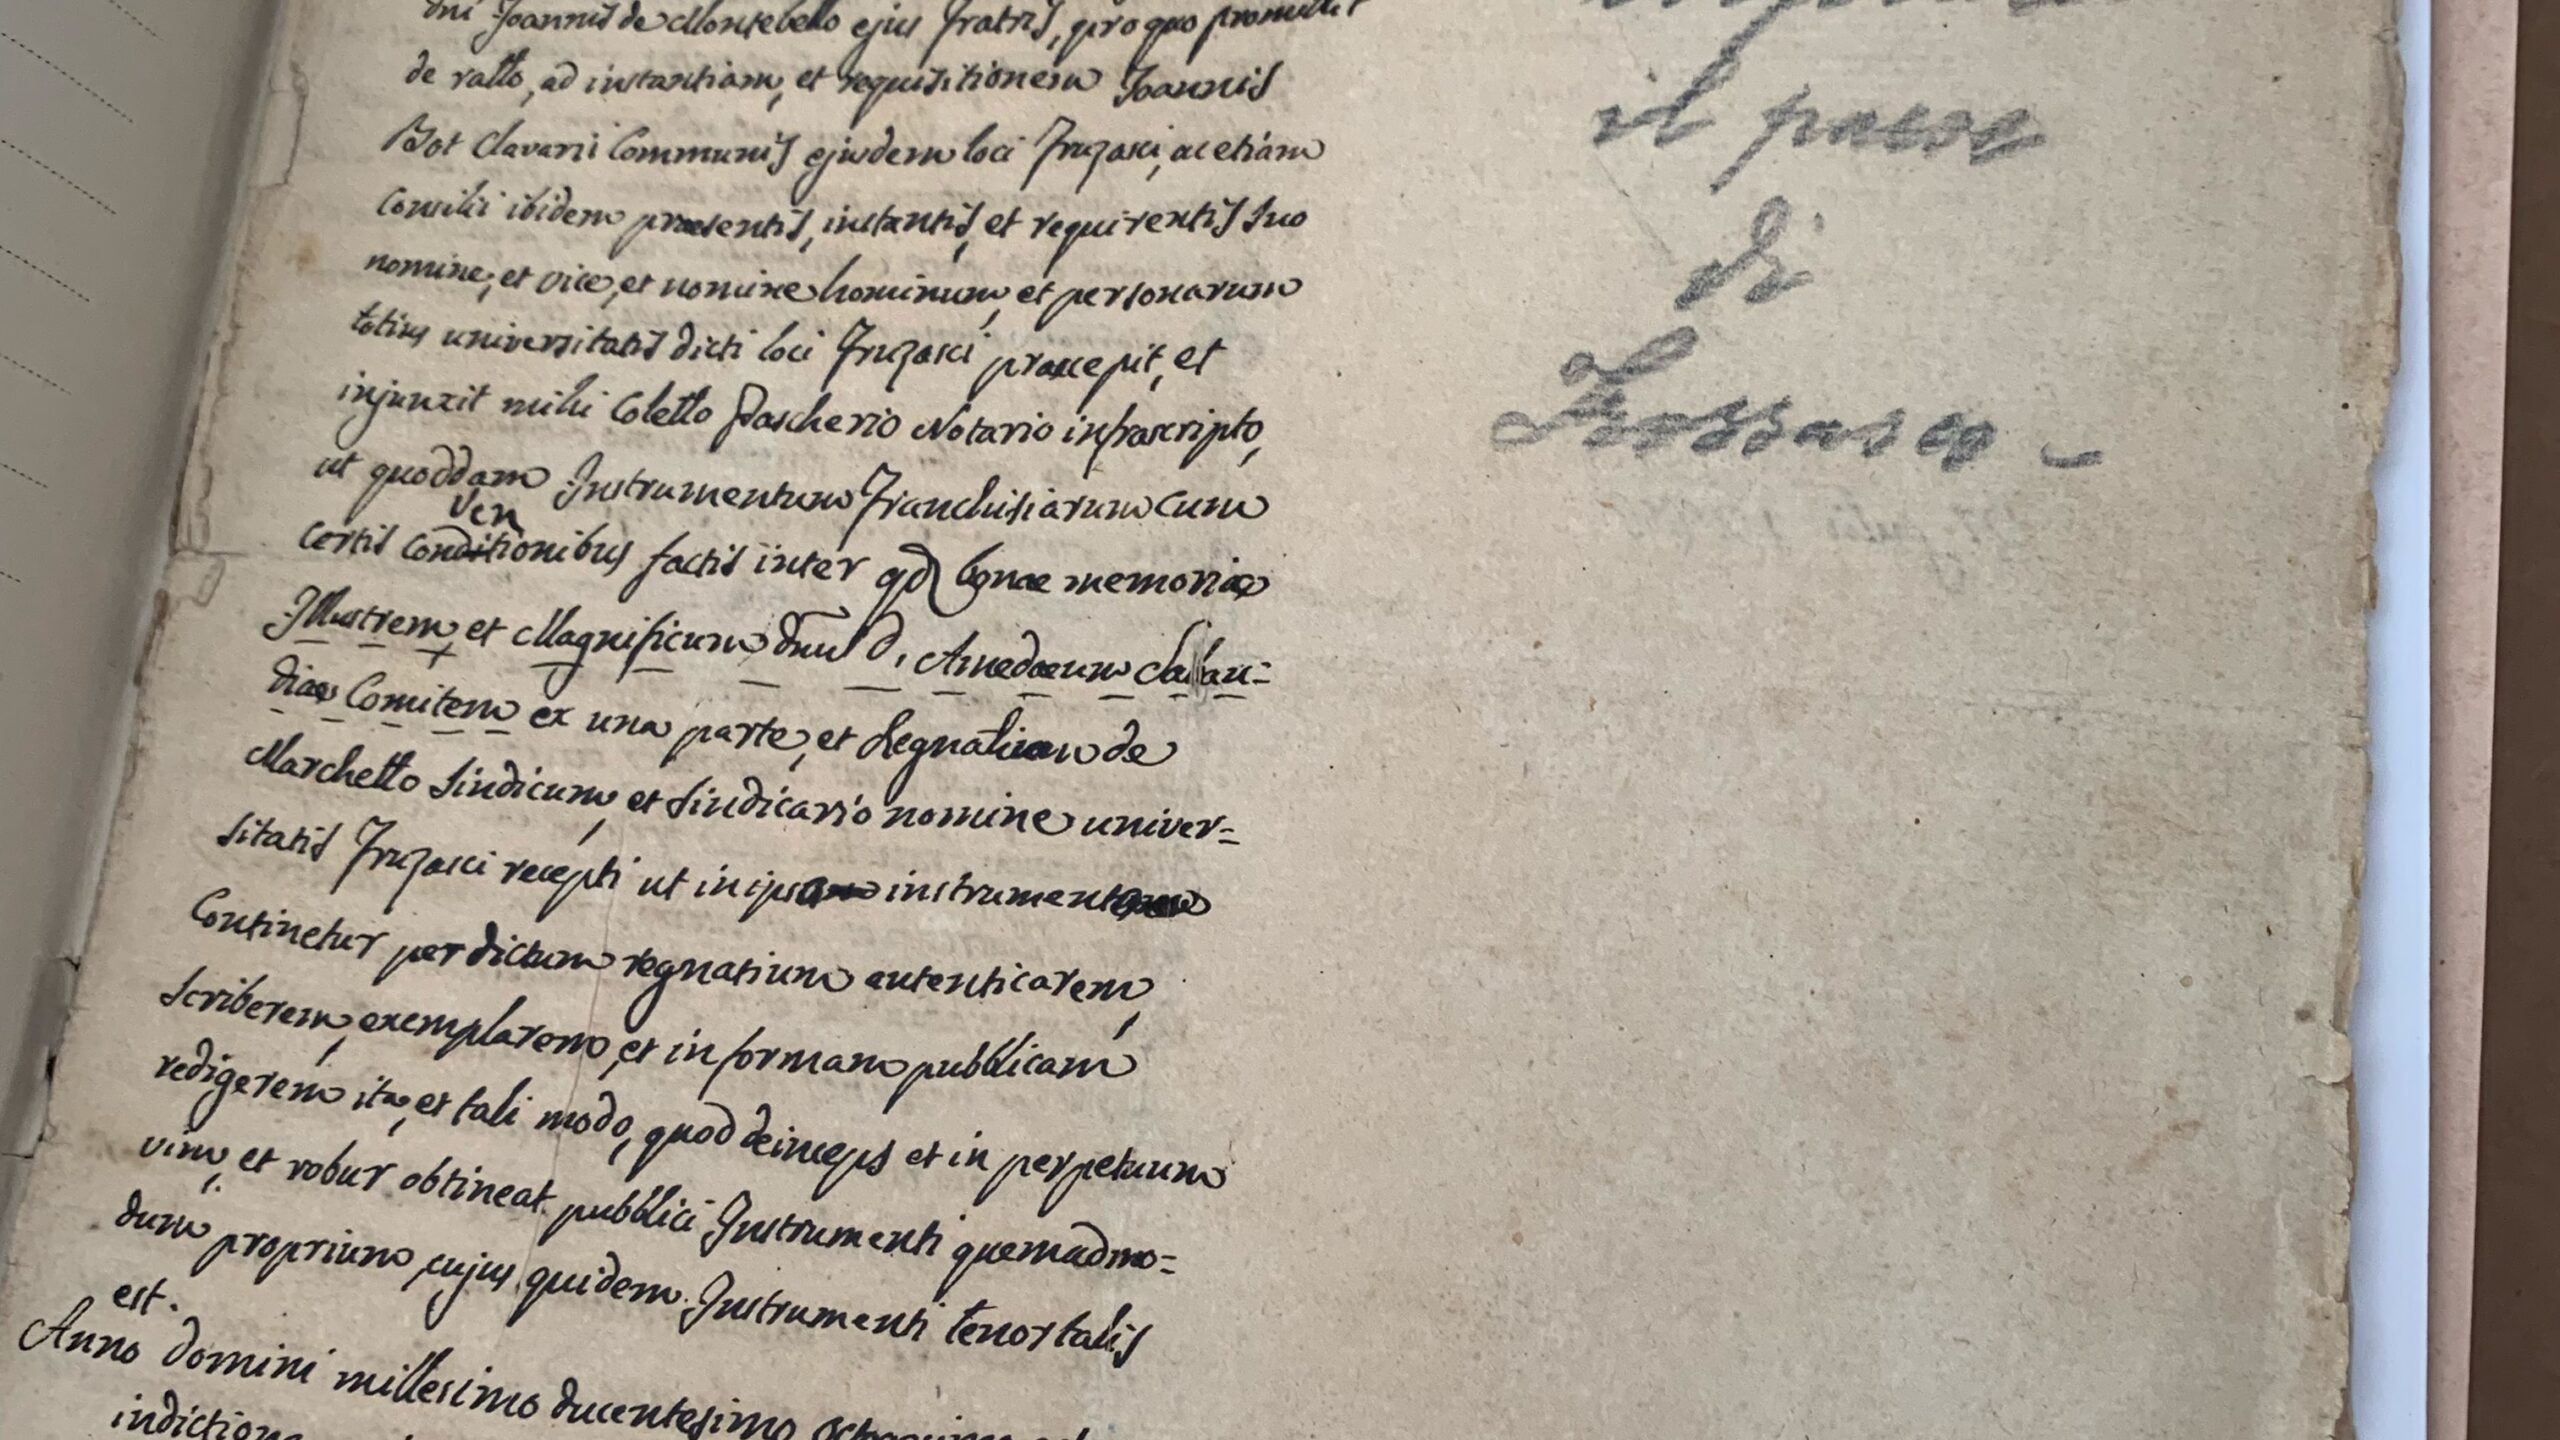 dni Joannis de Montebello ejus fratris, pro quo promittit
de ratto, ad instantiam, et requisitionem Joannis
Bot Clavarii Communis ejusdem loci Fruzasci, ac etiam
Consilii ibidem praesentis, instantis, et requirentis suo
nomine, et vice, et nomine hominum, et personarum
totius universitatis dicti loci Fruzasci praecepit, et
injunxit mihi Coletto Pascherio Notario infrascripto,
ut quoddam Instrumentum Franchisiarum cum
ven
certis conditionibus factis inter qd bonae memoriae
Illustrem, et Magnificum dnu D. Amedaeum Sabau=
diae Comitem ex una parte, et Regnatium de
Marchetto Sindicum, et Sindicario nomine univer=
sitatis Fruzasci recepti ut in ipso instrumento
Continetur per dictum regnatium autenticarem,
scriberem, exemplarem, et in formam pubblicam
redigerem ita, et tali modo, quod deinceps et in perpetuum
vim, et robur obtineat pubblici Instrumenti quemadmo=
dum proprium, cujus quidem Instrumenti tenor talis
est.
Anno domini millesimo ducentesimo
indictione
il paese
di
Frossasco -